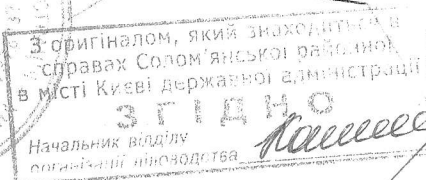 З оригіналом, який знаходиться в
справах Солом'янської районної
в місті Києві державної адміністрації
ЗГІДНО
Начальник відділу
організації діловодства